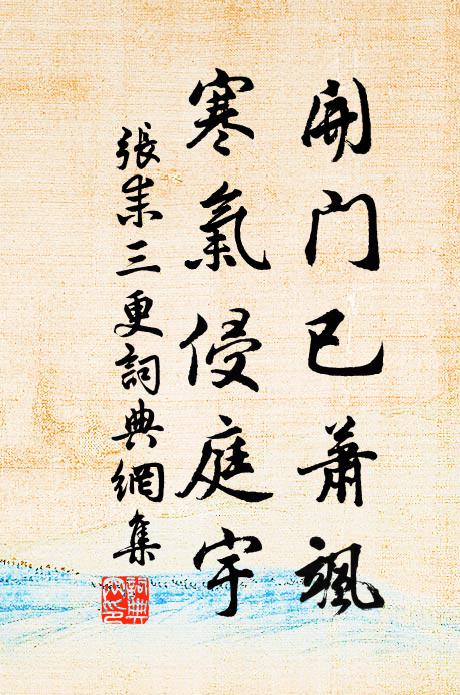 開門已蕭颯
寒氣侵庭宇
張耒三更詞典網集